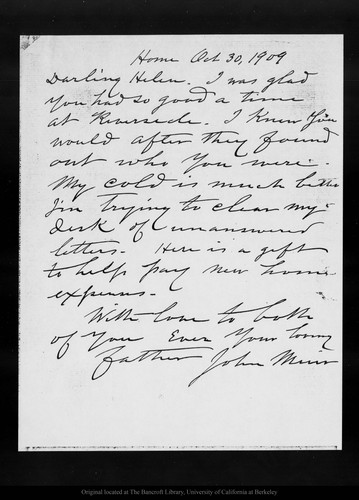 Home Oct 30, 1909
Darling Helen. I was glad
you had so good a time
at Riverside. I knew you
would after they found
out who you were.
My cold is much better
I'm trying to clear my
desk of unanswered
letters. Here is a gift
to help pay new home
expenses.
With love to both
of you Ever Your loving
father John Muir
Original located at The Bancroft Library, University of California at Berkeley